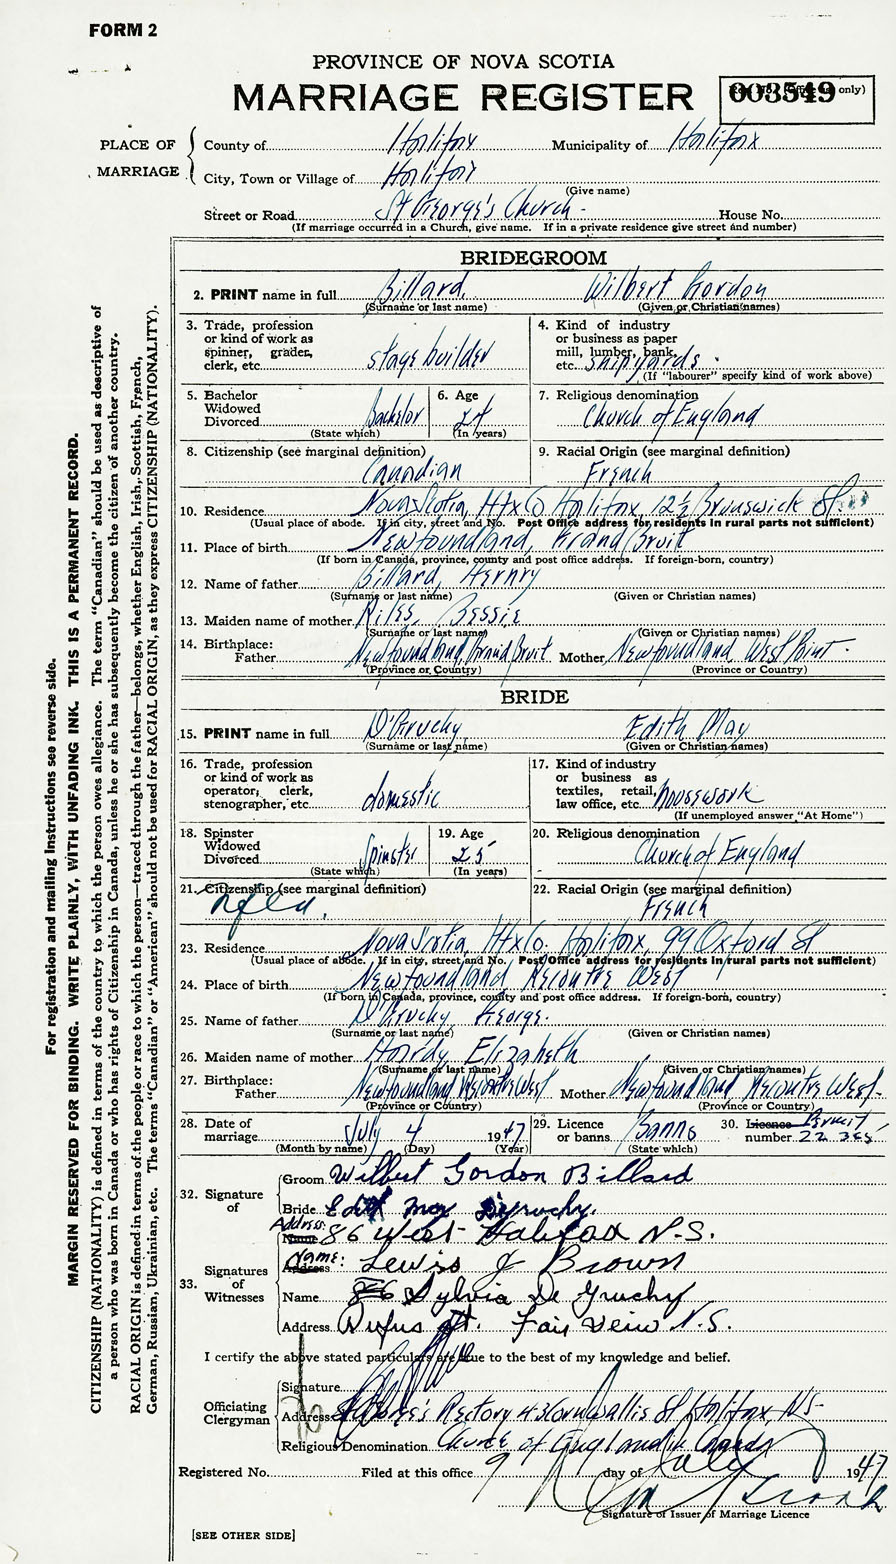 FORM 2
PROVINCE OF NOVA SCOTIA
MARRIAGE REGISTER
003549
only)
PLACE OF MARRIAGE
County of Halifax Municipality of Halifax
City, Town or Village of Halifax
(Give name)
Street or Road St George's Church - House No.
(If marriage occurred in a Church, give name. If in a private residence give street and number)
BRIDEGROOM
2. PRINT name in full Billard, Wilbert Gordon
(Surname or last name) (Given or Christian names)
3. Trade, profession or kind of work as spinner, grader, clerk, etc. stage builder
4. Kind of industry or business as paper mill, lumber, bank, etc. shipyards.
(If "labourer" specify kind of work above)
5. Bachelor Widowed Divorced Bachelor
(State which)
6. Age 24
(In years)
7. Religious denomination
Church of England
8. Citizenship (see marginal definition)
Canadian
9. Racial Origin (see marginal definition)
French
10. Residence Nova Scotia, Hfx Co Halifax, 12½ Brunswick St
(Usual place of abode. If in city, street and No. Post Office address for residents in rural parts not sufficient)
11. Place of birth Newfoundland, Grand Bruit
(If born in Canada, province, county and post office address. If foreign-born, country)
12. Name of father Billard, Henry
(Surname or last name) (Given or Christian names)
13. Maiden name of mother Bessie
(Surname or last name) (Given or Christian names)
14. Birthplace: Father Newfoundland, Grand Bruit Mother Newfoundland, West Point.
(Province or Country) (Province or Country)
BRIDE
15. PRINT name in full D'Gruchy, Edith May
(Surname or last name) (Given or Christian names)
16. Trade, profession or kind of work as operator, clerk, stenographer, etc. domestic
17. Kind of industry or business as textiles, retail, law office, etc. housework
(If unemployed answer "At Home")
18. Spinster Widowed Divorced Spinster
(State which)
19. Age 25
(In years)
20. Religious denomination
Church of England
21. Citizenship (see marginal definition)
Nfld.
22. Racial Origin (see marginal definition)
French
23. Residence Nova Scotia, Hfx Co. Halifax, 99 Oxford St
(Usual place of abode. If in city, street and No. Post Office address for residents in rural parts not sufficient)
24. Place of birth Newfoundland Recontre West
(If born in Canada, province, county and post office address. If foreign-born, country)
25. Name of father D'Gruchy George.
(Surname or last name) (Given or Christian names)
26. Maiden name of mother Hardy Elizabeth
(Surname or last name) (Given or Christian names)
27. Birthplace: Father Newfoundland Recontre West Mother Newfoundland, Recontre West-
(Province or Country) (Province or Country)
28. Date of marriage July 4 1947
(Month by name) (Day) (Year)
29. Licence or banns Banns
(State which)
30. Licence Permit number
32. Signature of
Groom Wilbert Gordon Billard
Bride Edith May
33. Signatures of Witnesses
Address: Name 86 West Halifax N.S.
Name: Address Lewis J Brown
Name Sylvia De Gruchy
Address Rufus St. Fair View N.S.
I certify the above stated particulars are true to the best of my knowledge and belief.
Officiating Clergyman
Signature
Address St George's Rectory 43 Cornwallis St Halifax, NS-
Religious Denomination Church of England in Canada
Registered No. Filed at this office 9 day of July 1947
Signature of Issuer of Marriage Licence
[SEE OTHER SIDE]
For registration and mailing instructions see reverse side.
MARGIN RESERVED FOR BINDING. WRITE PLAINLY, WITH UNFADING INK. THIS IS A PERMANENT RECORD.
CITIZENSHIP (NATIONALITY) is defined in terms of the country to which the person owes allegiance. The term "Canadian" should be used as descriptive of
a person who was born in Canada or who has rights of Citizenship in Canada, unless he or she has subsequently become the citizen of another country.
RACIAL ORIGIN is defined in terms of the people or race to which the person—traced through the father—belongs, whether English, Irish, Scottish, French,
German, Russian, Ukrainian, etc. The terms "Canadian" or "American" should not be used for RACIAL ORIGIN, as they express CITIZENSHIP (NATIONALITY).